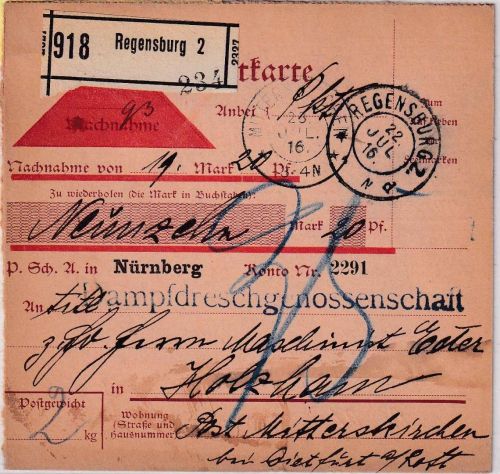 918 Regensburg 2
234
tkarte
93
Nachnahme
Anbei
REGENSBURG 2
22
JUL.
16
N d
23
JUL.
16
4N
Nachnahme von 19. Mark 20 Pf.
Zu wiederholen (die Mark in Buchstaben).
Neunzehn Mark 20 Pf.
P. Sch. A. in Nürnberg Konto Nr. 2291
An
Dampfdreschgenossenschaft
z. Hd. Herrn Maschinist Eder
in Holzham
Postgewicht
2 kg
Wohnung
(Straße und
Hausnummer)
Post Mitterskirchen
bei Dietfurt a/Rott